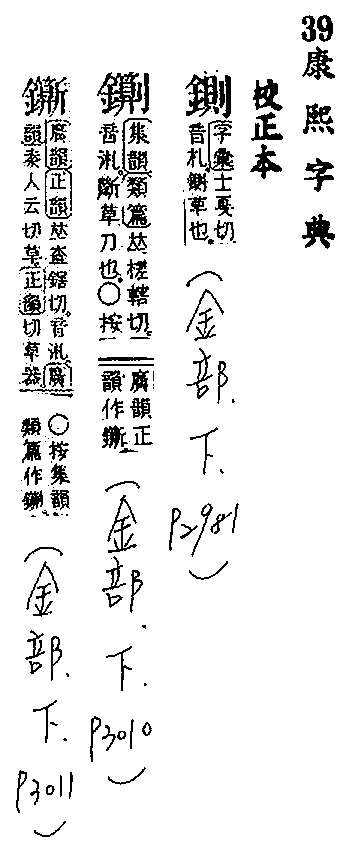 39 康熙字典
校正本
鍘
字彙士戛切
音札鍘草也
(金部.下.P2981)
集韻類篇𠀤槎轄切
音汃斷草刀也○按
廣韻正
韻作䥷
(金部.下.P3010)
䥷
廣韻正韻𠀤查鎋切音汃廣
韻秦人云切草正韻切草器
○按集韻
類篇作
(金部.下.P3011)